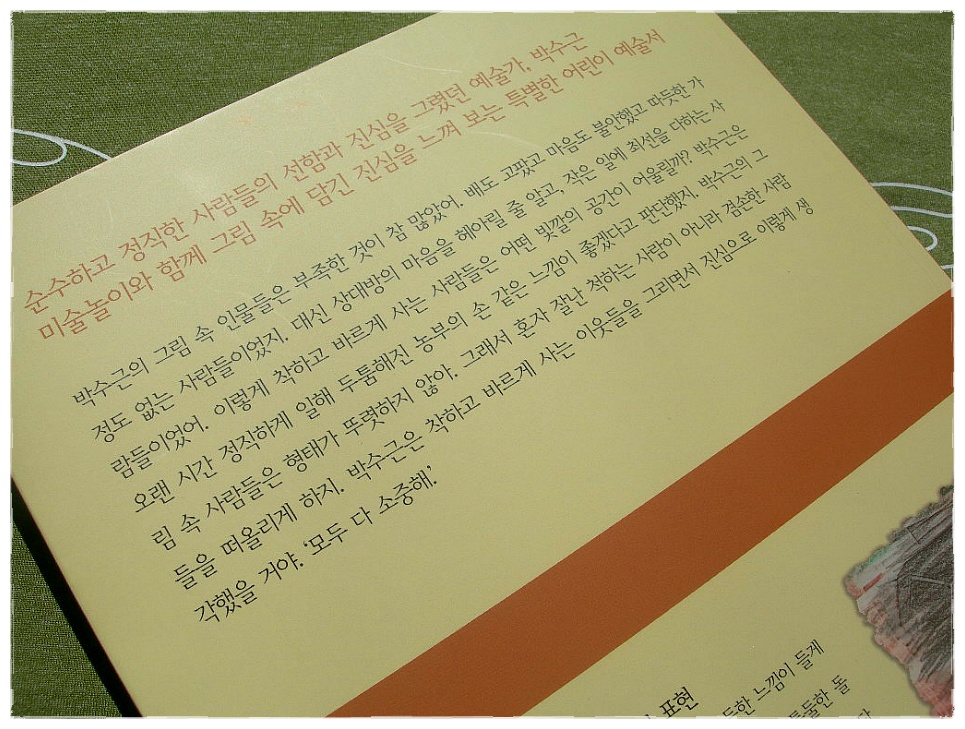 순수하고 정직한 사람들의 선함과 진심을 그렸던 예술가, 박수근
미술놀이와 함께 그림 속에 담긴 진심을 느껴 보는 특별한 어린이 예술서
박수근의 그림 속 인물들은 부족한 것이 참 많았어. 배도 고팠고 마음도 불안했고 따듯한 가
정도 없는 사람들이었지. 대신 상대방의 마음을 헤아릴 줄 알고, 작은 일에 최선을 다하는 사
람들이었어. 이렇게 착하고 바르게 사는 사람들은 어떤 빛깔의 공간이 어울릴까? 박수근은
오랜 시간 정직하게 일해 두툼해진 농부의 손 같은 느낌이 좋겠다고 판단했지. 박수근의 그
림 속 사람들은 형태가 뚜렷하지 않아. 그래서 혼자 잘난 척하는 사람이 아니라 겸손한 사람
들을 떠올리게 하지. 박수근은 착하고 바르게 사는 이웃들을 그리면서 진심으로 이렇게 생
각했을 거야. ‘모두 다 소중해.’
표현
느낌이 들게
돌